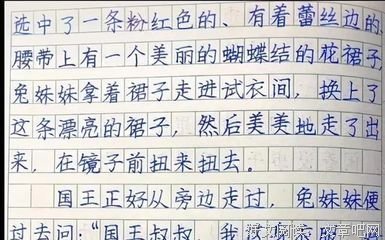 选中了一条粉红色的、有着蕾丝边的、
腰带上有一个美丽的蝴蝶结的花裙子
兔妹妹拿着裙子走进试衣间，换上了
这条漂亮的裙子，然后美美地走了出
来，在镜子前扭来扭去。
国王正好从旁边走过，兔妹妹便
过去问："国王叔叔，我
文章吧网